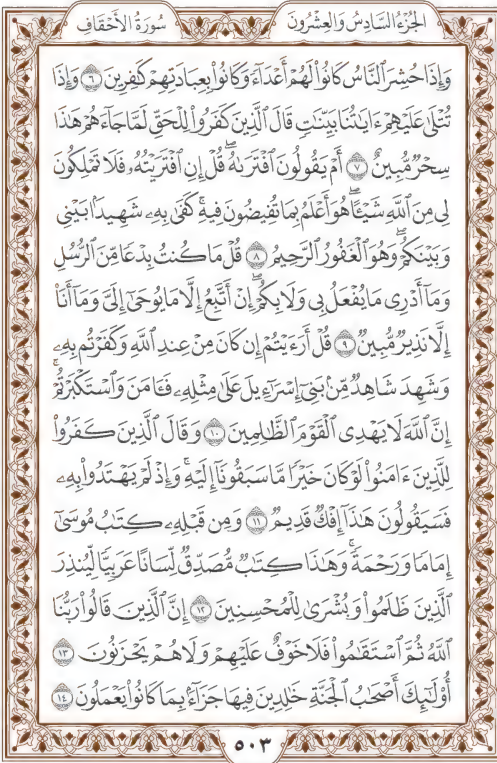 الجُزْءُ السَّادِسُ وَالعِشْرُونَ
سُورَةُ الأَحْقَافِ
وَإِذَا حُشِرَ ٱلنَّاسُ كَانُوا۟ لَهُمْ أَعْدَآءً وَكَانُوا۟ بِعِبَادَتِهِمْ كَٰفِرِينَ ٦ وَإِذَا
تُتْلَىٰ عَلَيْهِمْ ءَايَٰتُنَا بَيِّنَٰتٍ قَالَ ٱلَّذِينَ كَفَرُوا۟ لِلْحَقِّ لَمَّا جَآءَهُمْ هَٰذَا
سِحْرٌ مُّبِينٌ ٧ أَمْ يَقُولُونَ ٱفْتَرَىٰهُ ۖ قُلْ إِنِ ٱفْتَرَيْتُهُۥ فَلَا تَمْلِكُونَ
لِى مِنَ ٱللَّهِ شَيْـًٔا ۖ هُوَ أَعْلَمُ بِمَا تُفِيضُونَ فِيهِ ۖ كَفَىٰ بِهِۦ شَهِيدًۢا بَيْنِى
وَبَيْنَكُمْ ۖ وَهُوَ ٱلْغَفُورُ ٱلرَّحِيمُ ٨ قُلْ مَا كُنتُ بِدْعًا مِّنَ ٱلرُّسُلِ
وَمَآ أَدْرِى مَا يُفْعَلُ بِى وَلَا بِكُمْ ۖ إِنْ أَتَّبِعُ إِلَّا مَا يُوحَىٰٓ إِلَىَّ وَمَآ أَنَا۠
إِلَّا نَذِيرٌ مُّبِينٌ ٩ قُلْ أَرَءَيْتُمْ إِن كَانَ مِنْ عِندِ ٱللَّهِ وَكَفَرْتُم بِهِۦ
وَشَهِدَ شَاهِدٌ مِّنۢ بَنِىٓ إِسْرَٰٓءِيلَ عَلَىٰ مِثْلِهِۦ فَـَٔامَنَ وَٱسْتَكْبَرْتُمْ ۖ
إِنَّ ٱللَّهَ لَا يَهْدِى ٱلْقَوْمَ ٱلظَّٰلِمِينَ ١٠ وَقَالَ ٱلَّذِينَ كَفَرُوا۟
لِلَّذِينَ ءَامَنُوا۟ لَوْ كَانَ خَيْرًا مَّا سَبَقُونَآ إِلَيْهِ ۚ وَإِذْ لَمْ يَهْتَدُوا۟ بِهِۦ
فَسَيَقُولُونَ هَٰذَآ إِفْكٌ قَدِيمٌ ١١ وَمِن قَبْلِهِۦ كِتَٰبُ مُوسَىٰٓ
إِمَامًا وَرَحْمَةً ۚ وَهَٰذَا كِتَٰبٌ مُّصَدِّقٌ لِّسَانًا عَرَبِيًّا لِّيُنذِرَ
ٱلَّذِينَ ظَلَمُوا۟ وَبُشْرَىٰ لِلْمُحْسِنِينَ ١٢ إِنَّ ٱلَّذِينَ قَالُوا۟ رَبُّنَا
ٱللَّهُ ثُمَّ ٱسْتَقَٰمُوا۟ فَلَا خَوْفٌ عَلَيْهِمْ وَلَا هُمْ يَحْزَنُونَ ١٣
أُو۟لَٰٓئِكَ أَصْحَٰبُ ٱلْجَنَّةِ خَٰلِدِينَ فِيهَا جَزَآءًۢ بِمَا كَانُوا۟ يَعْمَلُونَ ١٤
٥٠٣